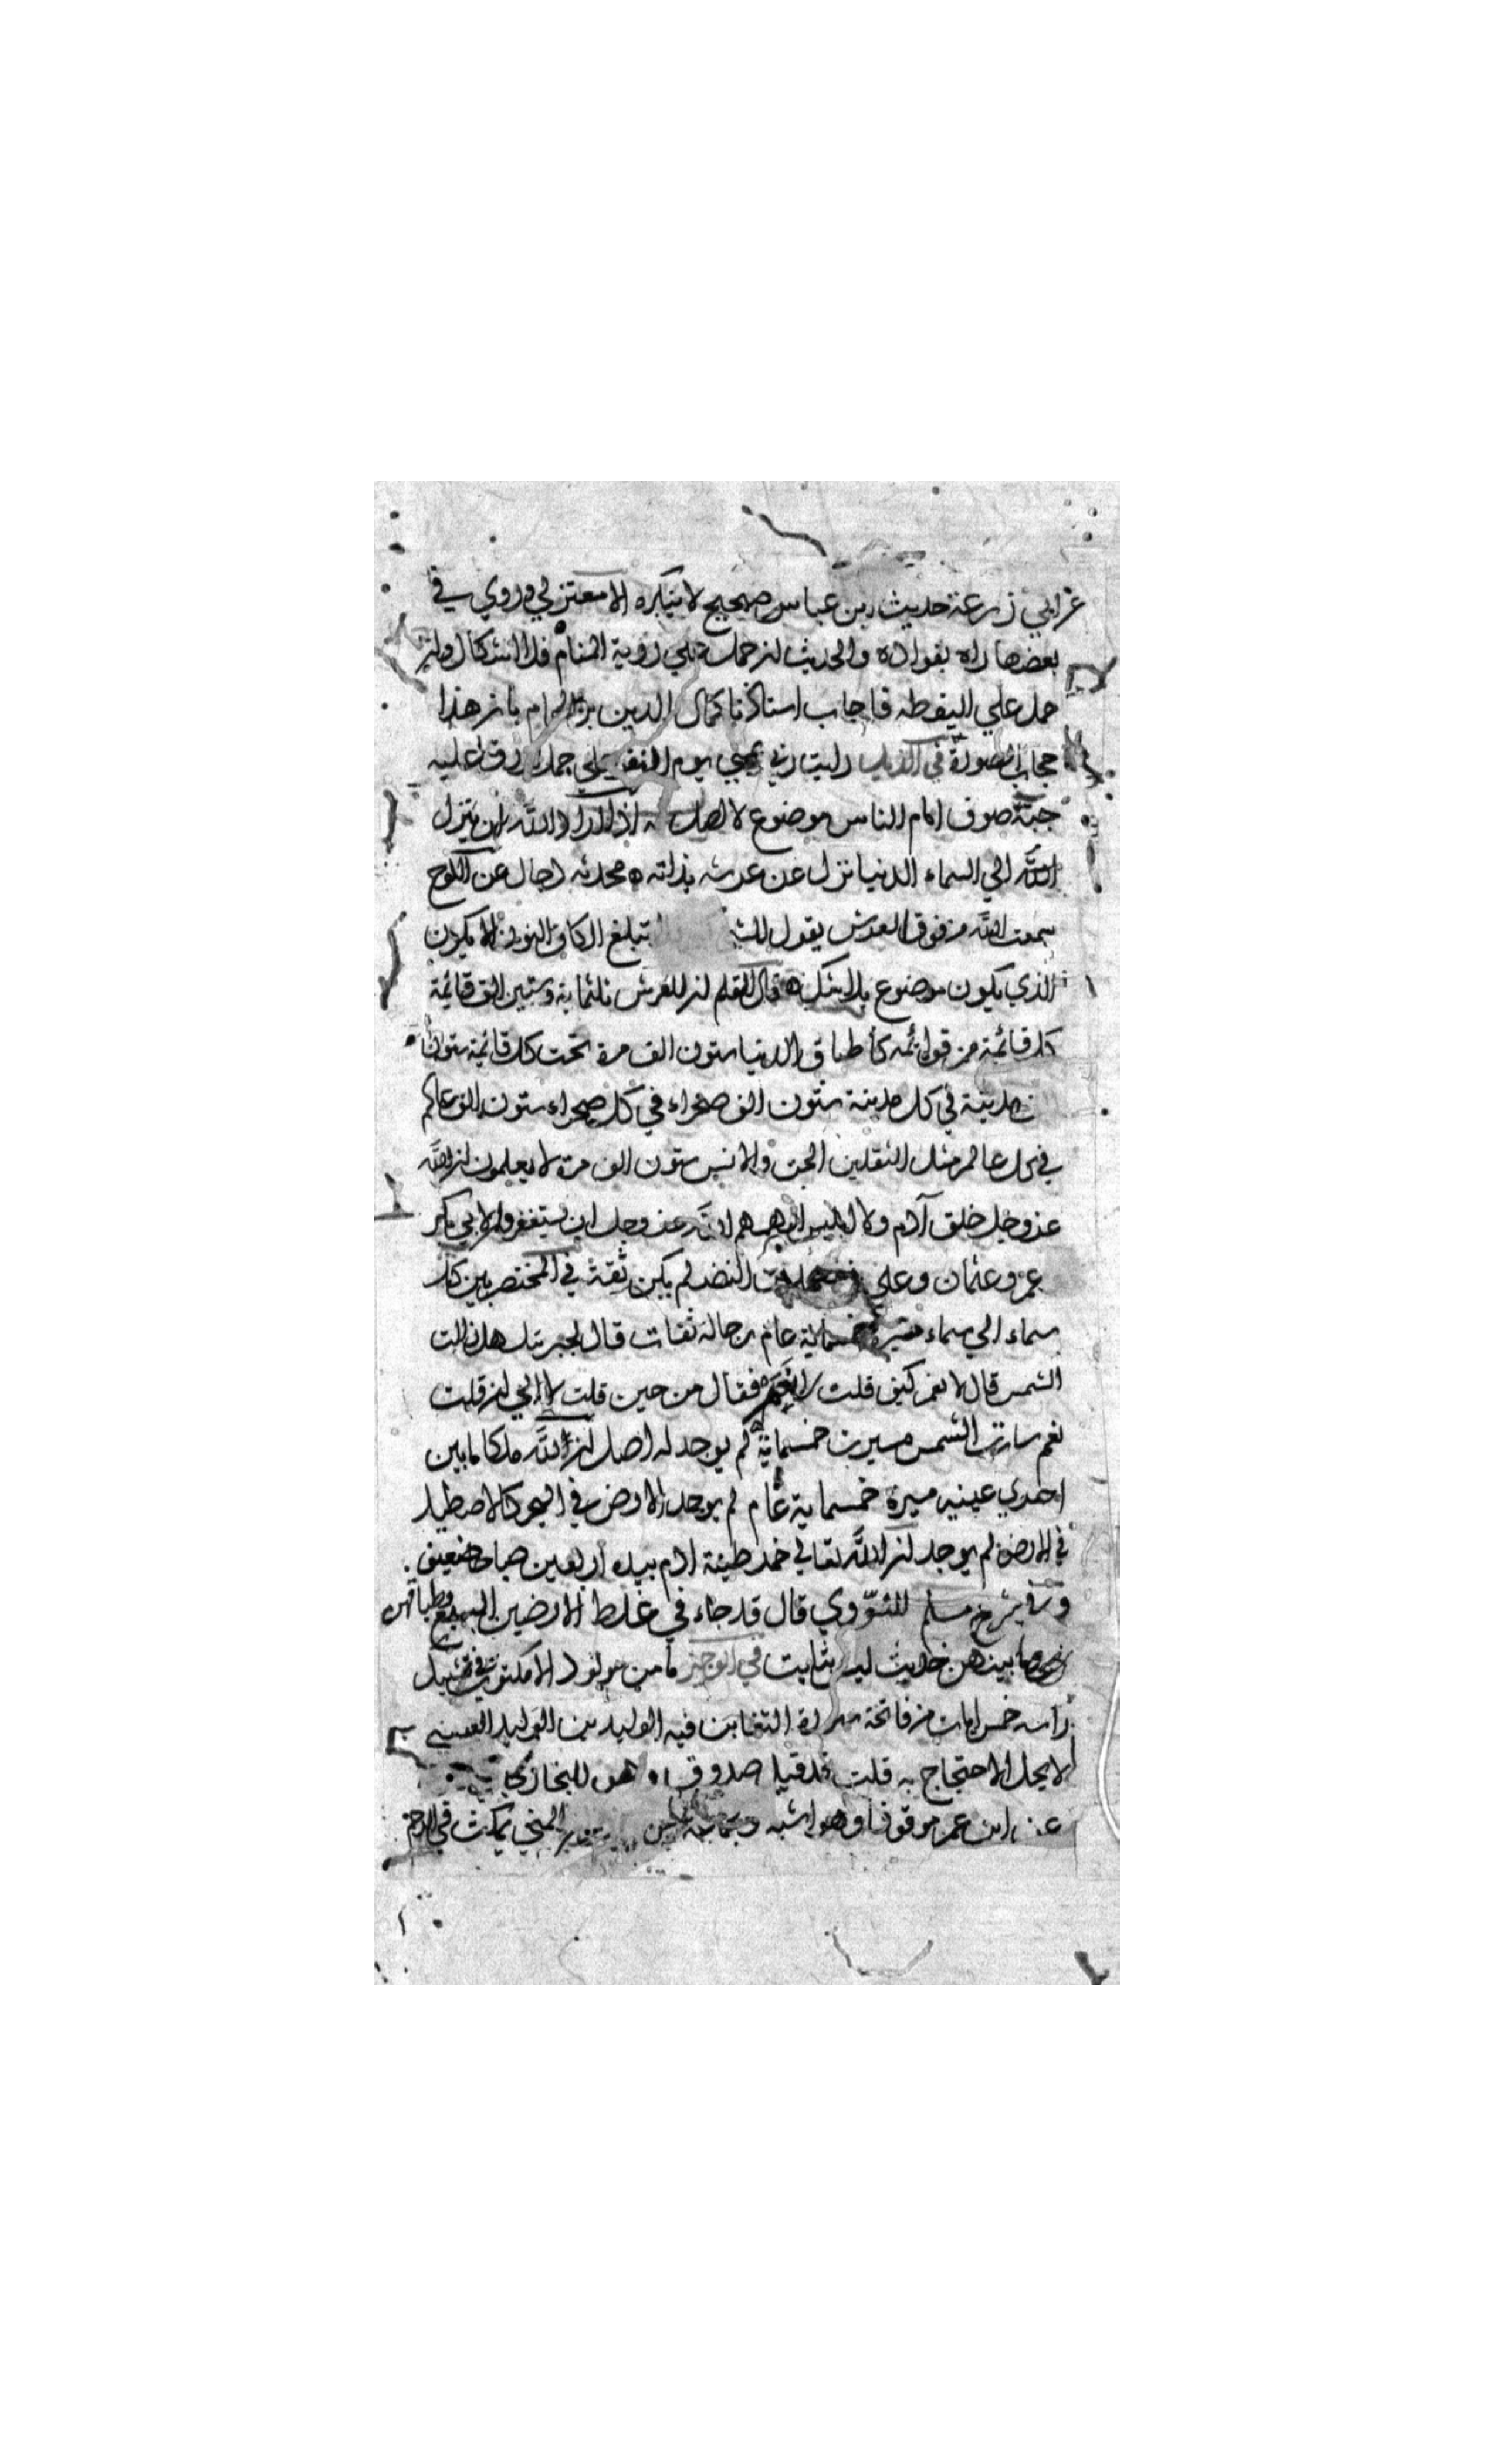 عن ابي زرعة حديث ابن عباس صحيح لا ينكره الا معتزلي وروي في
بعضها راه بفواده والحديث ان حمل علي روية المنام فلا اشكال وان
حمل علي اليقظه فاجاب استاذنا كمال الدين بن الهمام بان هذا
حجاب الصورة في الذيل رايت ربي بمني يوم النفر علي جمل اورق عليه
جبة صوف امام الناس موضوع لا اصل له اذا اراد الله ان ينزل
الله الي السماء الدنيا نزل عن عرشه بذاته محدثه دجال عن اللوح
سمعت الله من فوق العرش يقول للشي تبلغ الكاف النون الا يكون
الذي يكون موضوع بلا شك قال القلم ان للعرش ثلثماية وستين الف قائمة
كل قائمة من قوائمه كاطباق الدنيا ستون الف مرة تحت كل قائمة ستون
مدينة في كل مدينة ستون الف صحراء في كل صحراء ستون الف عالم
في كل عالم مثل الثقلين الجن والانس ستون الف مرة لا يعلمون ان الله
عز وجل خلق آدم ولا ابليس الهمهم الله عز وجل ان يستغفروا لابي بكر
عمر وعثمان وعلي النضر لم يكن ثقة في المختصر بين كل
سماء الي سماء مسيرة خمسماية عام رجاله ثقات قال لجبرئيل هل زالت
الشمس قال لا نعم كيف قلت لا نعم فقال من حين قلت لا الي ان قلت
نعم سارت الشمس مسيرت خمسماية لم يوجد له اصل ان لله ملكا ما بين
احدي عينيه ميرة خمسماية عام لم يوجد الارض في البحر كالاصطبل
في الارض لم يوجد ان الله تعالي خمر طينة ادم بيده اربعين صباحا ضعيف
وفي شرح مسلم للنووي قال قد جاء في غلظ الارضين السبع وطباقهن
وما بينهن حديث ليس بثابت في الوجيز ما من مولود الا مكتوب في تشبيك
راسه خمس ايات من فاتحة سورة التغابن فيه الوليد بن الوليد العنسي
لا يحل الاحتجاج به قلت صدوق للبخاري
عن ابن عمر موقوفا وهو اشبه المني يمكث في الرحم